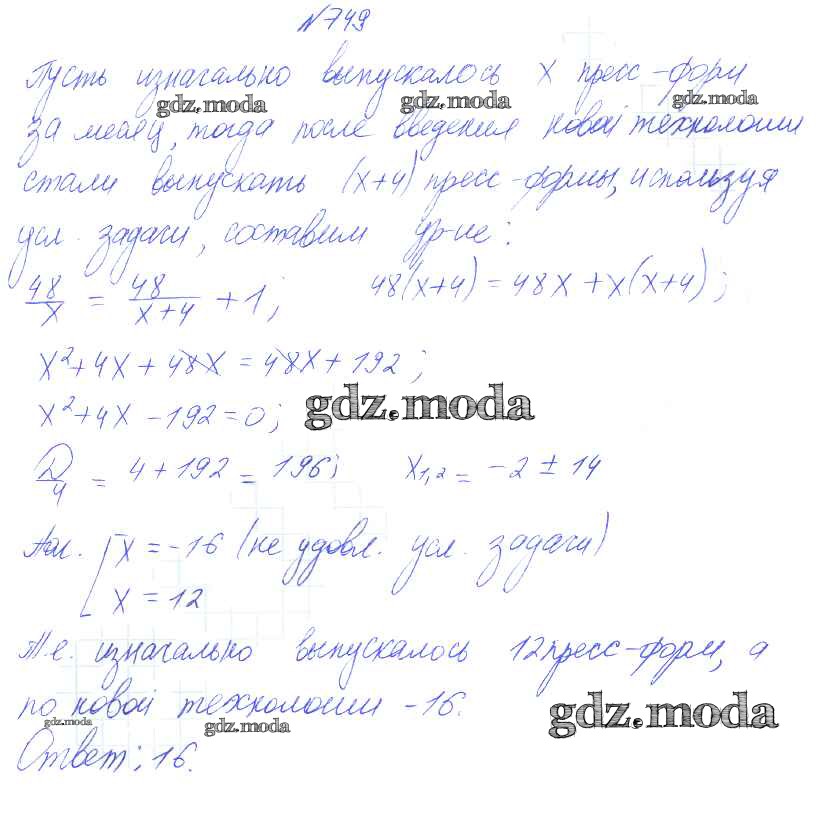 №749
Пусть изначально выпускалось x пресс-форм
gdz.moda gdz.moda gdz.moda
за месяц, тогда после введения новой технологии
стали выпускать (x+4) пресс-формы, используя
усл. задачи, составим ур-ие:
48/x = 48/(x+4) + 1; 48(x+4) = 48x + x(x+4);
x² + 4x + 48x = 48x + 192;
x² + 4x - 192 = 0;
gdz.moda
D/4 = 4 + 192 = 196; x₁,₂ = -2 ± 14
[x = -16 (не удовл. усл. задачи)
x = 12
Т.е. изначально выпускалось 12 пресс-форм, а
по новой технологии - 16.
gdz.moda gdz.moda gdz.moda
Ответ: 16.